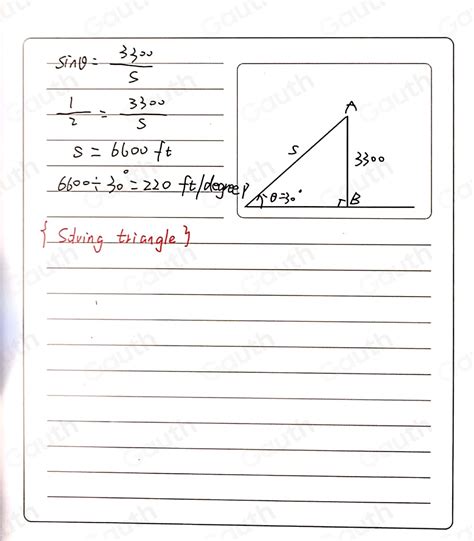 sinθ = 3300/S
1/2 = 3300/S
S = 6600 ft
6600 ÷ 30° = 220 ft/degree
{ Solving triangle }
A
S
3300
P
θ=30°
B